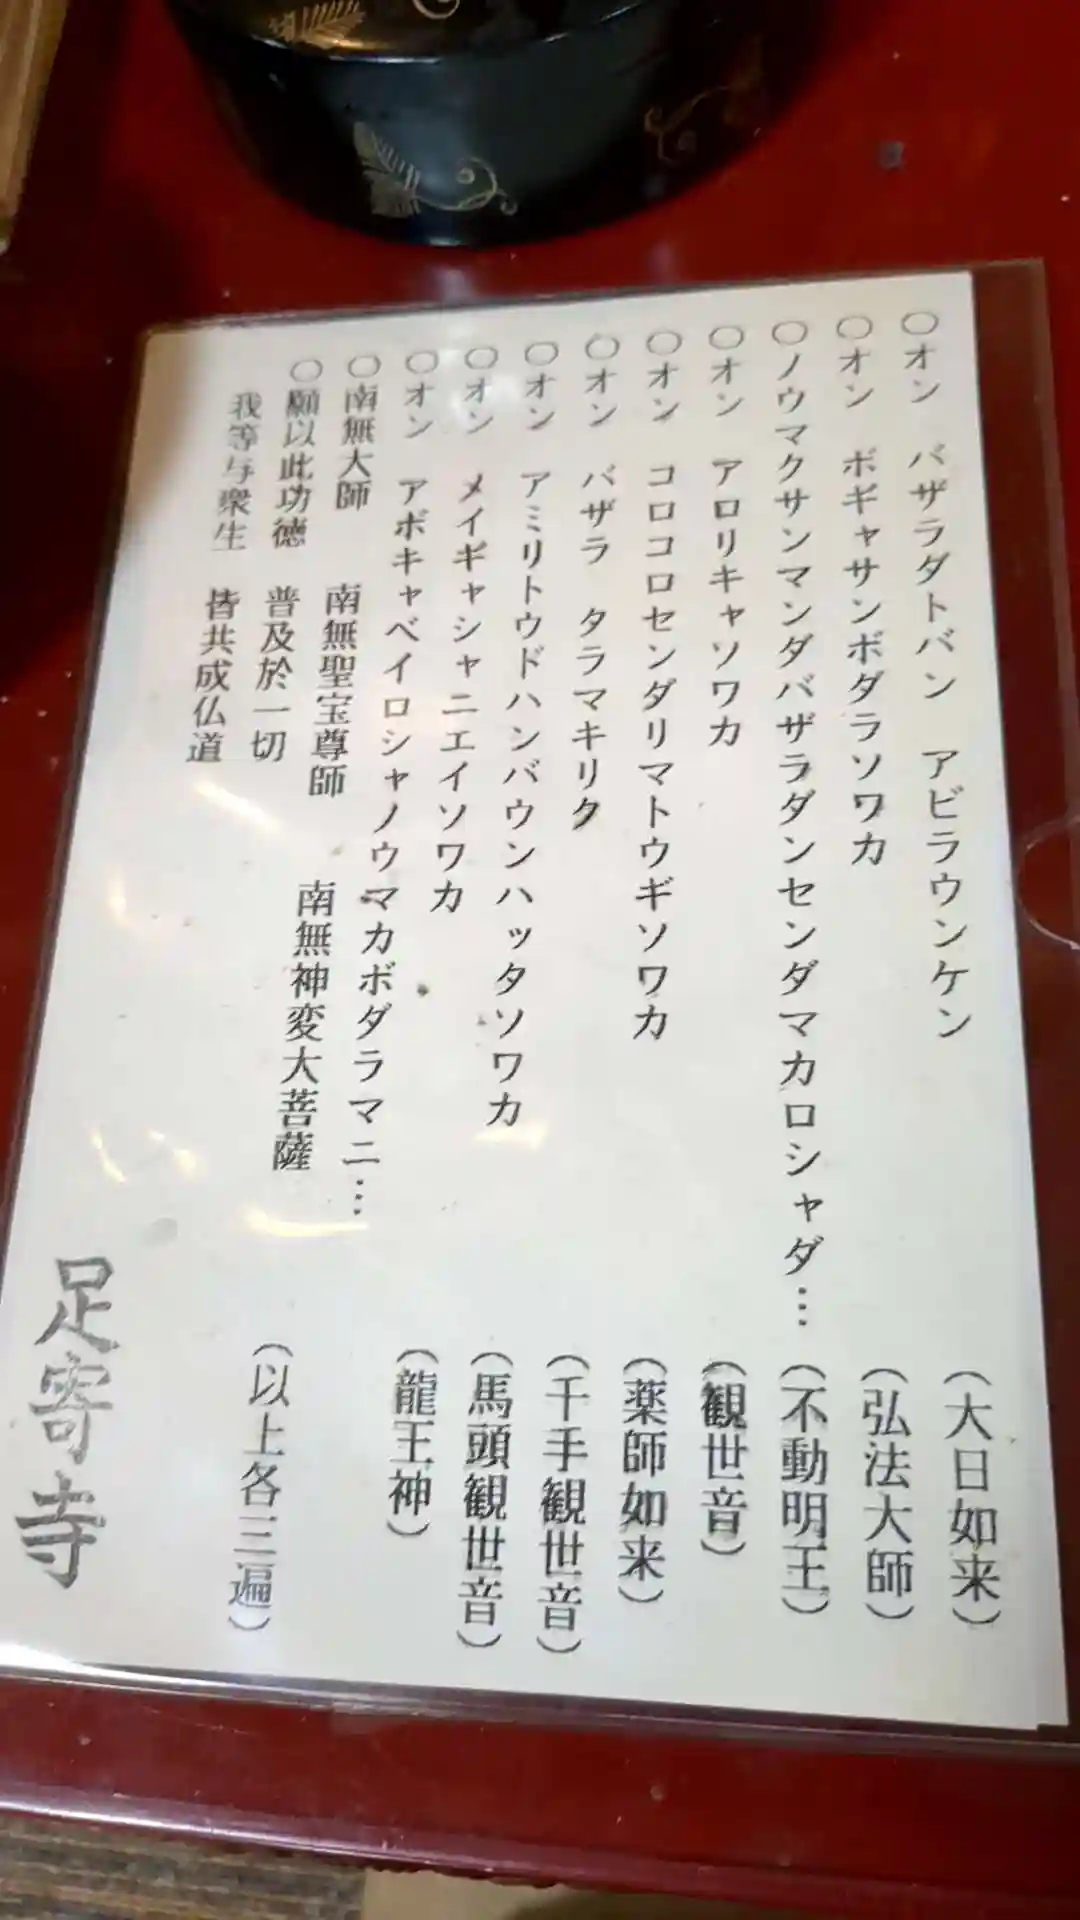 ○オン　バザラダトバン　アビラウンケン　（大日如来）
○オン　ボギャサンボダラソワカ　（弘法大師）
○ノウマクサンマンダバザラダンセンダマカロシャダ…（不動明王）
○オン　アロリキャソワカ　（観世音）
○オン　コロコロセンダリマトウギソワカ　（薬師如来）
○オン　バザラ　タラマキリク　（千手観世音）
○オン　アミリトウドハンバウンハッタソワカ　（馬頭観世音）
○オン　メイギャシャニエイソワカ　（龍王神）
○オン　アボキャベイロシャノウマカボダラマニ…
○南無大師　南無聖宝尊師　南無神変大菩薩
○願以此功徳　普及於一切
我等与衆生　皆共成仏道　（以上各三遍）
足寄寺